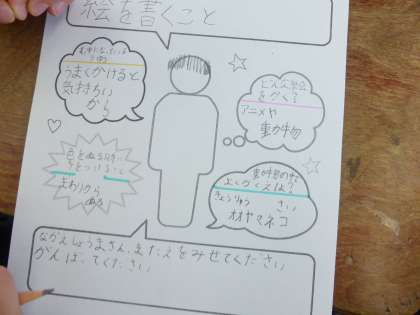 絵を書くこと
うまくかけると
気持ちい
から
どんな絵
をかく?
アニメや
動物
色をぬる
まわりから
ぬる
動物の中で
よくかくえは?
きょうりゅう
さい
オオヤマネコ
ながえしょうまさん、またえをみせてください
がんばってください